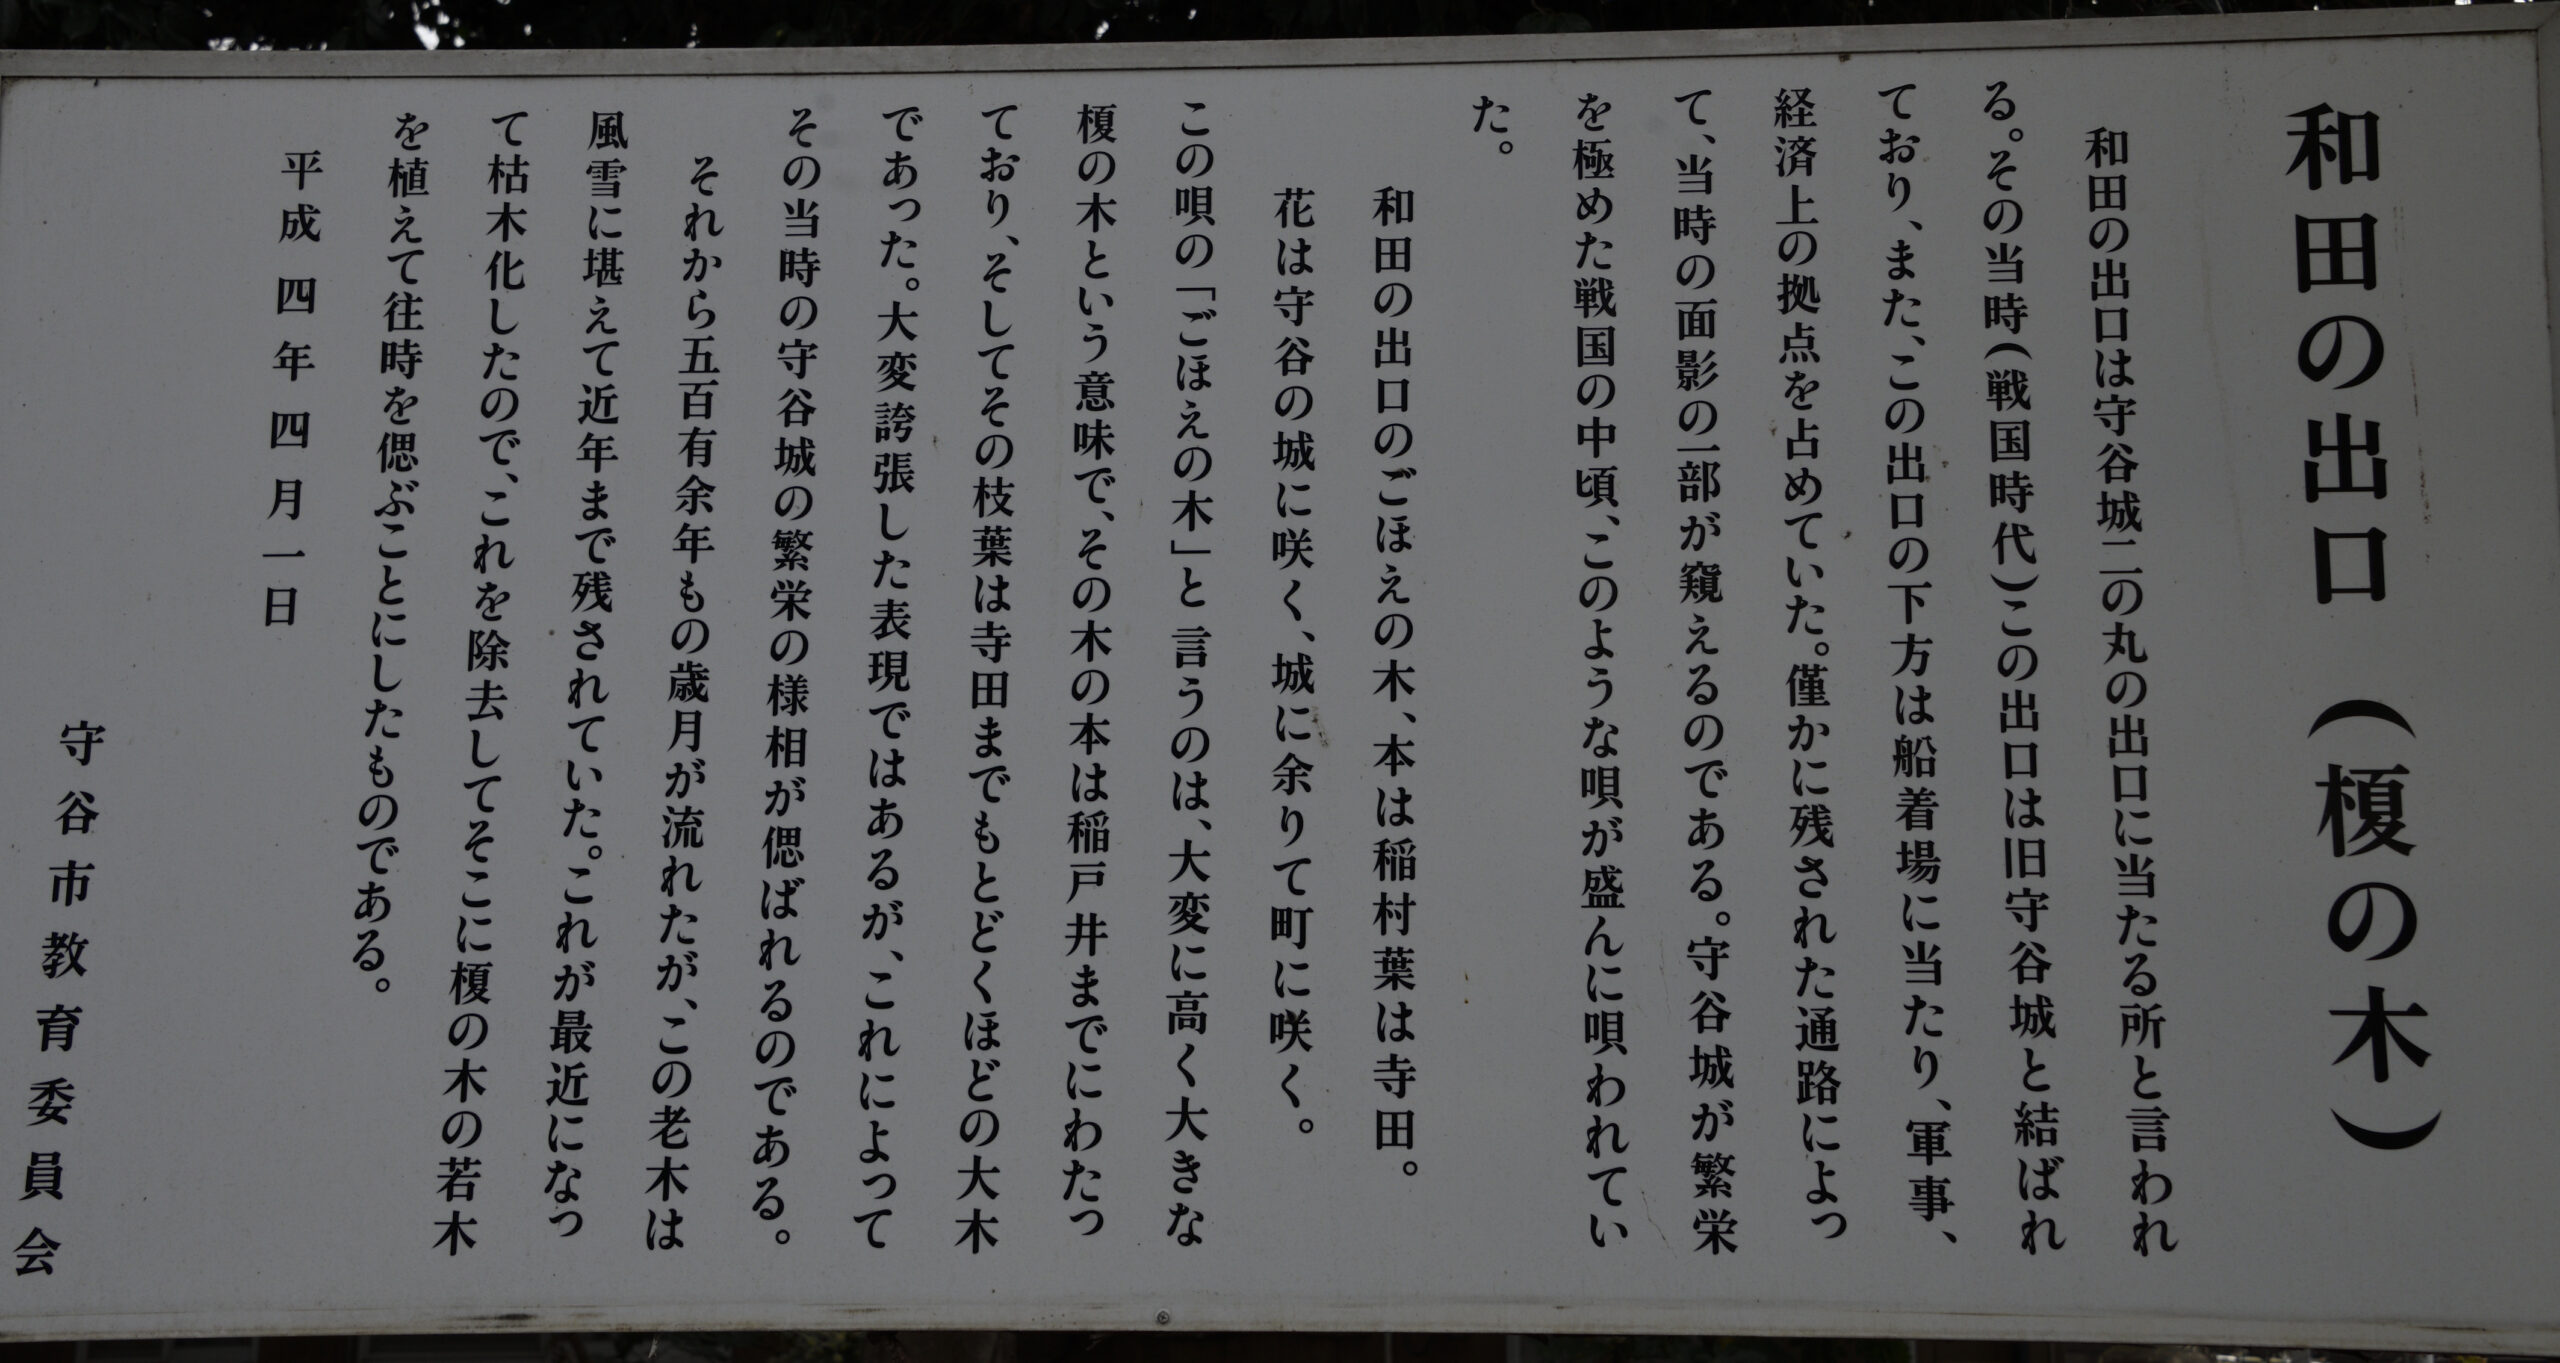 和田の出口（榎の木）
和田の出口は守谷城二の丸の出口に当たる所と言われ
る。その当時（戦国時代）この出口は旧守谷城と結ばれ
ており、また、この出口の下方は船着場に当たり、軍事、
経済上の拠点を占めていた。僅かに残された通路によっ
て、当時の面影の一部が窺えるのである。守谷城が繁栄
を極めた戦国の中頃、このような唄が盛んに唄われてい
た。
和田の出口のごほえの木、本は稲村葉は寺田。
花は守谷の城に咲く、城に余りて町に咲く。
この唄の「ごほえの木」と言うのは、大変に高く大きな
榎の木という意味で、その木の本は稲戸井までにわたっ
ており、そしてその枝葉は寺田までもとどくほどの大木
であった。大変誇張した表現ではあるが、これによって
その当時の守谷城の繁栄の様相が偲ばれるのである。
それから五百有余年もの歳月が流れたが、この老木は
風雪に堪えて近年まで残されていた。これが最近になっ
て枯木化したので、これを除去してそこに榎の木の若木
を植えて往時を偲ぶことにしたものである。
平成四年四月一日
守谷市教育委員会